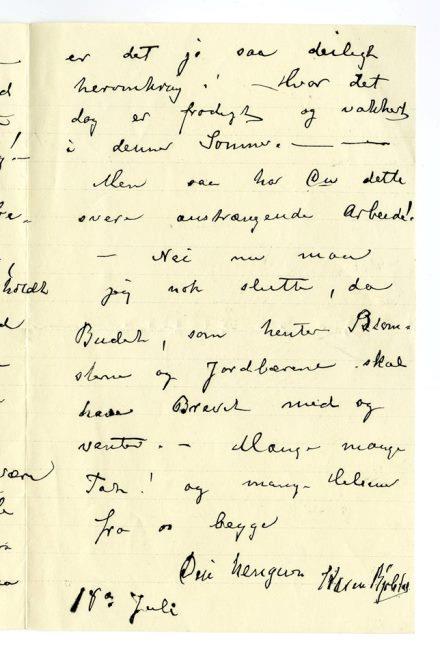 er det jo saa deiligt
heromkring! – Hvor det
dog er frodigt og vakkert
i denne Sommer. — —
Men saa har Du dette
svere anstrængende Arbeide!
– Nei nu maa
jeg nok slutte, da
Budet, som henter Blom-
sterne og Jordbærene skal
have Brevet med og
venter. – Mange mange
Tak! og mange Hilsener
fra os begge
Din hengivne Karen
18de Juli
holdt